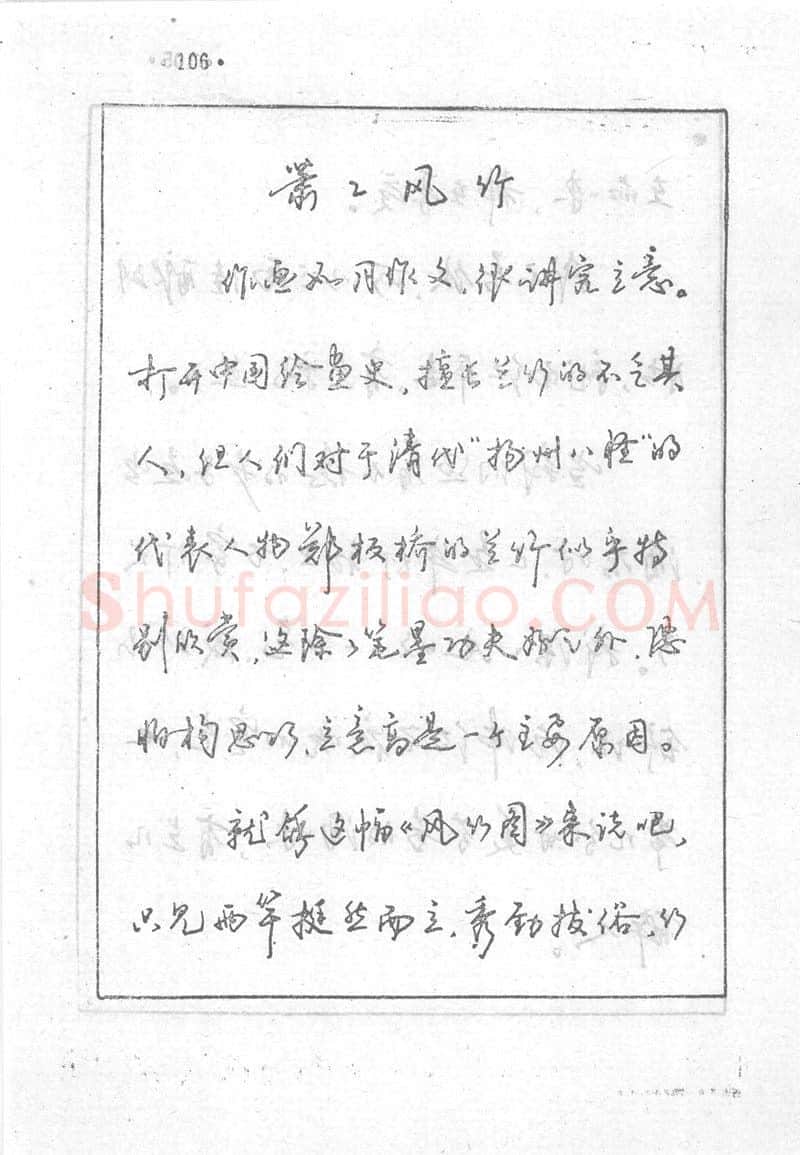 ·106·
萧々风竹
作画如同作文，很讲究立意。
打开中国绘画史，擅长兰竹的不乏其
人，但人们对于清代“扬州八怪”的
代表人物郑板桥的兰竹似乎特
别欣赏，这除了笔墨功夫好之外，恐
怕构思巧，立意高是一个主要原因。
就馀这幅《风竹图》来说吧，
只见两竿挺然而立，秀劲拔俗，竹
Shufaziliao.COM